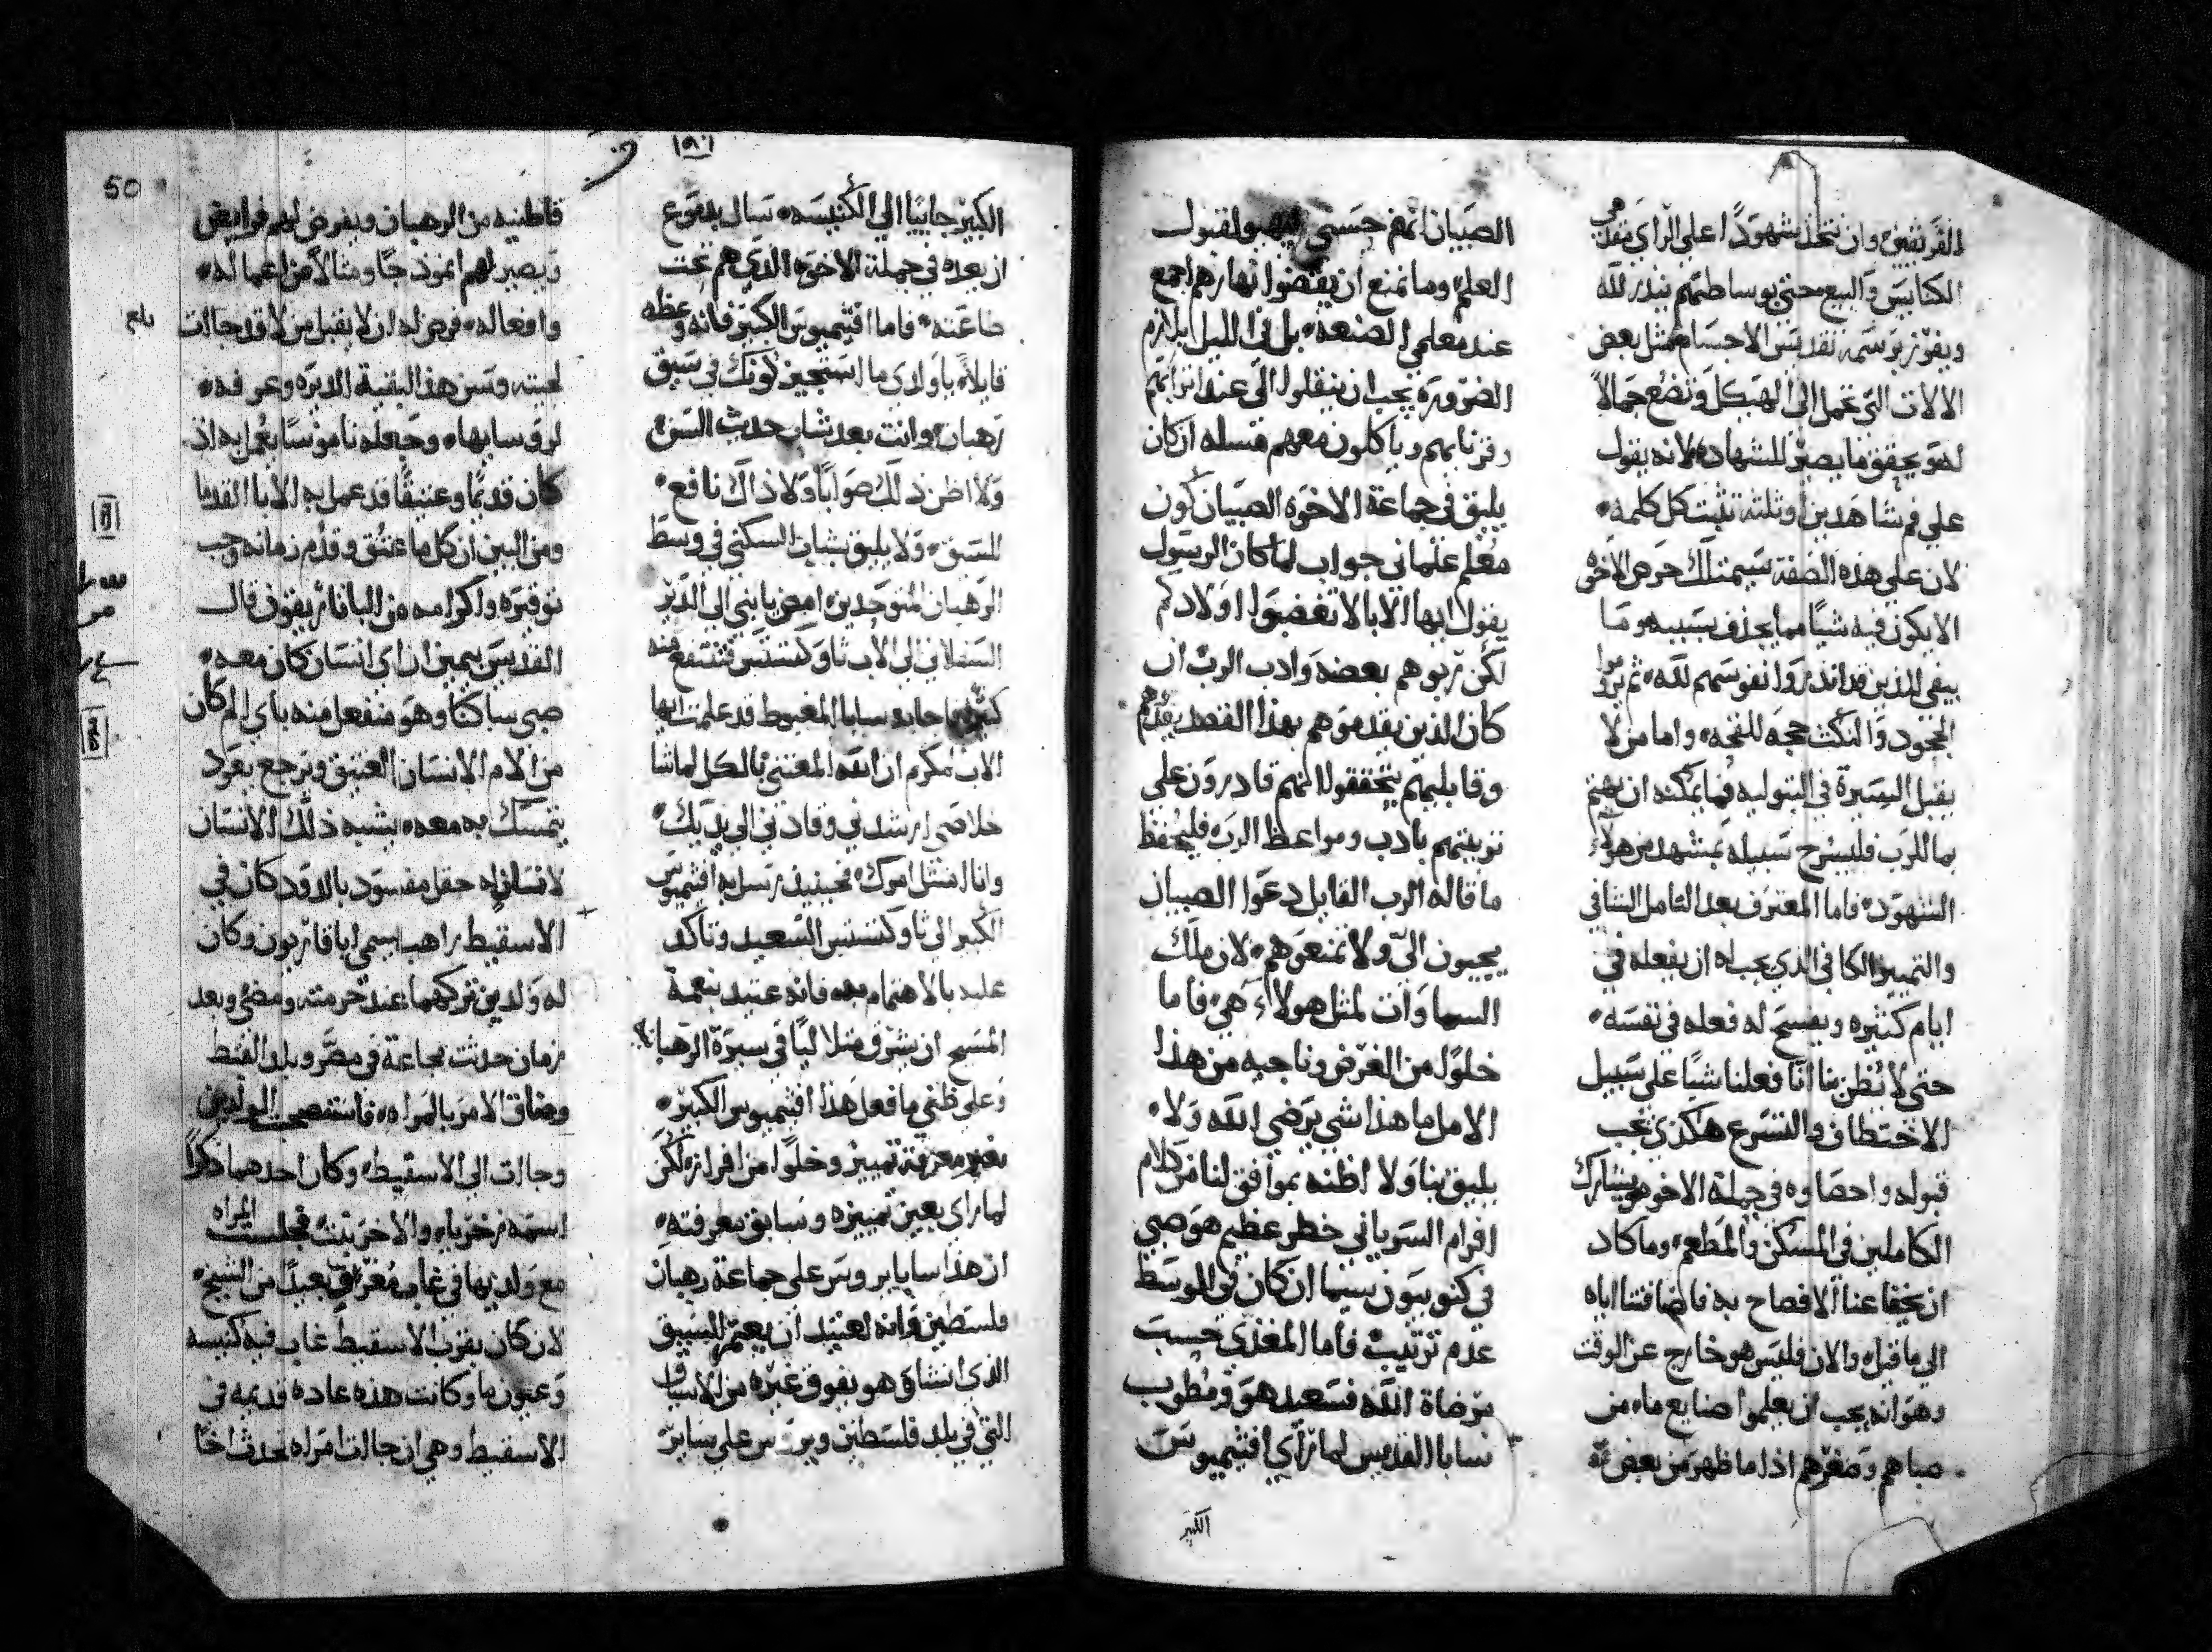 الفريقين وان نتخذ شهودًا على الراي متقدمي
الكنايس والبيع حتى بوساطتهم ينذر لله
ويفوز برسمه تقديس الاجسام مثل بعض
الالات التي تحمل الى الهيكل وتضع جمالاً
لهو يحقق ما يصير للشهاده لانه يقول
على فم شاهدين او ثلثه تثبت كل كلمه
لان على هذه الصفة حرص الاخوه
الا يكون فيه شيًا مما بسببه وما
يبقى للذين قد انذروا نفوسهم لله ثم يروموا
الجحود والنكث حجه للقحه واما من لا
يقبل السيرة في البتوليه فما يمكنه ان يهتم
بما للرب فليسرح سبيله بمشهد من هولاء
الشهود فاما المعترف بعد التامل الشافي
والتمييز الكافي الذي يجب له ان يفعله في
ايام كثيره ويفسح له فعله في نفسه
حتى لا يُظن بنا انا فعلنا شيًا على سبيل
الاختطاف والتسرع هكذي يجب
قبوله واحصاوه في جملة الاخوه ويشارك
الكاملين في المسكن والمطعم وما كاد
ان يخفا عنا الافصاح به فاضافتنا اياه
الي ما قبله والان فليس هو خارج عن الوقت
وهو انه يجب ان يعلموا صنايع ما من
صباهم وصغرهم اذا ما ظهر من بعض
الصبيان انهم حسني لقبول
العلم وما نمنع ان يقضوا نهارهم اجمع
عند معلمي الصنعه بل في الليل
الضروره يجب ان ينقلوا الى عند اترابهم
وقرنايهم وياكلون معهم مسله ان كان
يليق في جماعة الاخوه الصبيان كون
معلم علماني جواب لما كان الرسول
يقول ايها الابا لا تغضبوا اولادكم
لكن ربوهم بعضه وادب الرب ان
كان الذين يقدموهم بهذا القصد يقدموهم
وقابليهم يتحققوا انهم قادرون على
تربيتهم بادب ومواعظ الرب فليحفظ
ما قاله الرب القايل دعوا الصبيان
يجيون اليّ ولا تمنعوهم لان ملك
السماوات لمثل هولاء هي فاما
خلوًا من الغرض وناجيه من هذا
الامل ما هذا شي يرضي الله ولا
يليق بنا ولا اظنه بموافق لنا من كلام
افرام السرياني خطر عظيم هو صبي
في كنوبيون سيما ان كان في الوسط
عدم ترتيب فاما المغذى حسب
مرضاة الله فسعيد هو ومطوب
سابا القديس لما راي افثيميوس
الكبير
الكبير جاييًا الي الكنيسه سال بدموع
ان يعده في جملة الاخوه الذي هم تحت
طاعته فاما افثيميوس الكبير فانه وعظه
قايلاً يا ولدي ما استجيز كونك في سيق
رهبان وانت بعد شاب حدث السن
ولا اظن ذلك صوابًا ولا ذاك نافع
للسيق ولا يليق بشاب السكنى في وسط
الرهبان المتوحدين امض يا بني الى الدير
السفلاني الى الاب ثاوكتستس فتنتفع منه
كثيرًا جابه سابا المغبوط قد علمت ايها
الاب المكرم ان الله المعتني بالكل لما شا
خلاصي ارشدني وقادني الى يديك
وانا امتثل امرك فحينيذ رسل به افثيميوس
الكبير الى ثاوكتستس السعيد وتاكد
عليه بالاهتمام به فانه عتيد بنعمة
المسيح ان يشرق مثلا ليًا في سيرة الرهبان
وعلى ظني ما فعل هذا افثيميوس الكبير
بغير معرفة تمييز وخلوًا من افراز لكن
لما راي بعين تمييزه وسابق معرفته
ان هذا سابا يروس على جماعة رهبان
فلسطين وانه لعتيد ان يعمر السيق
الذي انشاه هو يفوق غيره من الاسياق
التي في بلد فلسطين ويروس على ساير
قاطنيه من الرهبان ويفرض لهم فرايض
ويصير لهم انموذجًا ومثالاً من اعماله
وافعاله فرض له ان لا يقبل من لا قد جاات
لحيته وسن هذا لبقية الديره وعرفه
لروسايها وجعله ناموسًا يُعمل به اذ
كان قديمًا وعتيقًا قد عمل به الابا القدما
ومن البين ان كل ما عتق وقدُم زمانه وجب
توقيره واكرامه من الباباناريفون قال
القديس سيمين ان اي انسان كان معه
صبي ساكنًا وهو منفعل منه باي الم كان
من الام الانسان العتيق ويرجع يعود
يتمسك به معه يشبه ذلك الانسان
لانسان له حقل مفسود بالدود كان في
الاسقيط راهب يسمى ابا قاريون وكان
له ولدين تركهما عند حرمته ومضى وبعد
زمان حدثت مجاعة في مصر وبلد القبط
وضاق الامر بالمراه فاستصحبت الولدين
وجاات الى الاسقيط وكان احدهما ذكرًا
اسمه زخريا والاخر بنت فجلست المراه
مع ولديها في غاب بعيدًا من الشيخ
لان كان بقرب الاسقيط غاب فيه كنيسه
وعيون ما وكانت هذه عاده قديمه في
الاسقيط وهي ان جاات امراه لتحدث اخًا
بلع
50